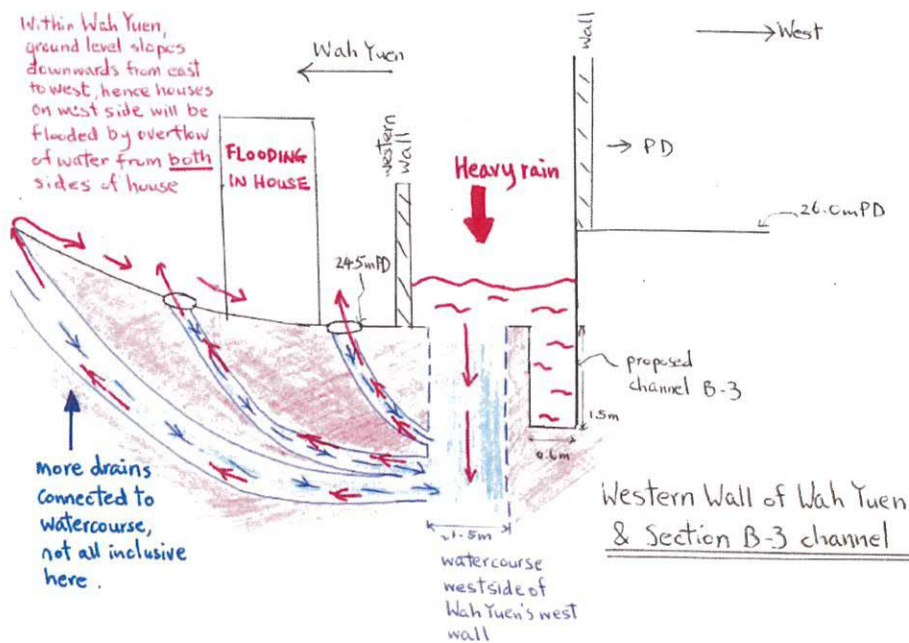 Within Wah Yuen,
ground level slopes
downwards from east
to west, hence houses
on west side will be
flooded by overflow
of water from both
sides of house
Wah Yuen
West
FLOODING
IN HOUSE
western
wall
Heavy rain
wall
PD
26.0mPD
24.5mPD
proposed
channel B-3
1.5m
0.6m
more drains
connected to
watercourse,
not all inclusive
here.
~1.5m
watercourse
westside of
Wah Yuen's west
wall
Western Wall of Wah Yuen
& Section B-3 channel